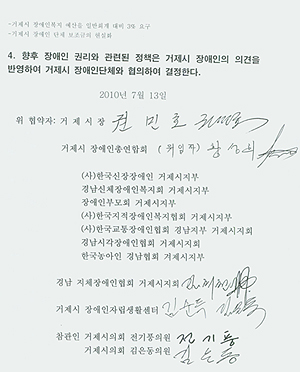 -거제시 장애인복지 예산을 일반회계 대비 3% 요구
-거제시 장애인 단체 보조금의 현실화
4. 향후 장애인 권리와 관련된 정책은 거제시 장애인의 의견을
반영하여 거제시 장애인단체와 협의하여 결정한다.
2010년 7월 13일
위 협약자: 거제시장 권민호
거제시 장애인총연합회 (위임자) 황성희
(사)한국신장장애인 거제시지부
경남신체장애인복지회 거제시지부
장애인부모회 거제시지부
(사)한국지적장애인복지협회 거제시지부
(사)한국교통장애인협회 경남지부 거제시지회
경남시각장애인협회 거제시지회
한국농아인 경남협회 겨제시지부
경남 지체장애인협회 거제시지회
거제시 장애인자립생활센터 김순득
참관인 거제시의회 전기풍의원 전기풍
거제시의회 김은동의원 김은동